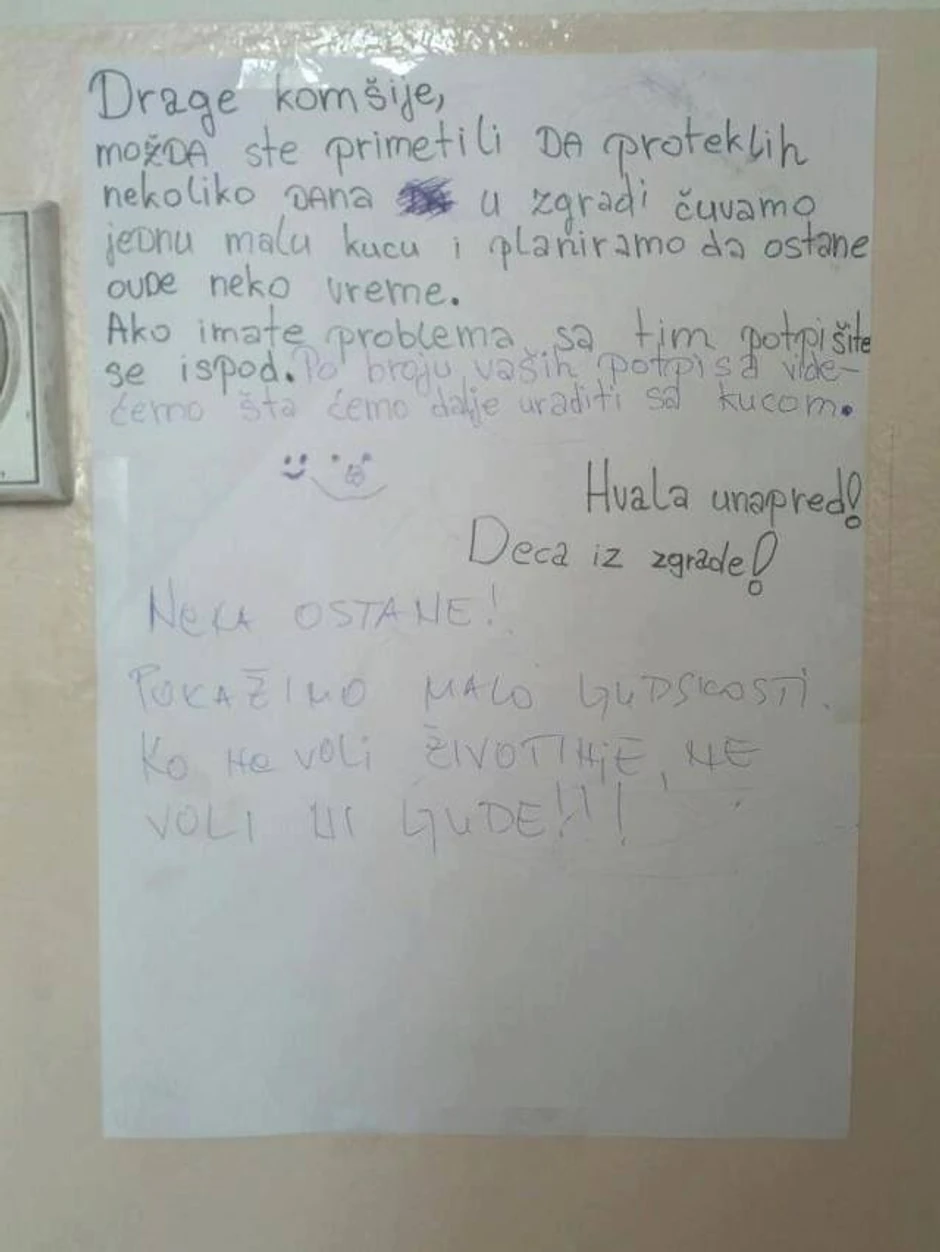 Drage komšije,
možDA ste primetili DA proteklih
nekoliko DANA u zgradi čuvamo
jeDnu malu kucu i planiramo da ostane
ovDe neko vreme.
Ako imate problema sa tim potpišite
se ispod. Po broju vaših potpisa vide-
ćemo šta ćemo dalje uraditi sa kucom.
Hvala unapred!
Deca iz zgrade!
NeKA OSTANE!
POKAŽIMO MALO LJUDSKOSTI.
Ko He voli ŽIVOTIHjE, NE
VOLI NI LJUDE!!!